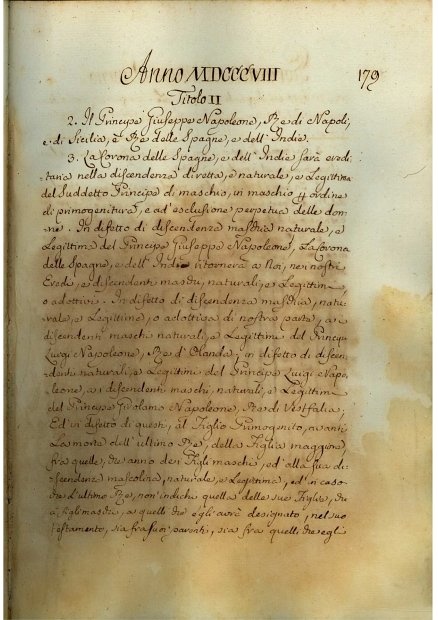 Anno MDCCCVIII 179
Titolo II
2. Il Principe Giuseppe Napoleone, Re di Napoli,
e di Sicilia, è Re delle Spagne, e dell' Indie.
3. La Corona delle Spagne, e dell' Indie sarà eredi-
taria nella discendenza diretta, e naturale, e Legittima
del Suddetto Principe di maschio, in maschio ꝑ ordine
di primogenitura, e ad' esclusione perpetua delle don-
ne. In difetto di discendenza maschia naturale, e
Legittima del Principe Giuseppe Napoleone, La Corona
delle Spagne, e dell' Indie ritornerà a Noi, ne' nostri
Eredi, e discendenti maschi, naturali, e Legittimi,
o adottivi. In difetto di discendenza maschia, natu-
rale, e Legittima, o adottiva di nostra parte, ai
discendenti maschi naturali, e Legittimi del Principe
Luigi Napoleone, Re d' Olanda; in difetto di discen-
denti naturali, e Legittimi del Principe Luigi Napo-
leone, ai discendenti maschi, naturali, e Legittimi
del Principe Girolamo Napoleone, Re di Vestfalia;
Ed' in difetto di questi, al Figlio Primogenito, avanti
La morte dell' ultimo Re, della Figlia maggiore,
fra quelle, che anno dei Figli maschi, ed' alla sua di-
scendenza mascolina, naturale, e Legittima, ed' in caso
che l'ultimo Re, non indichi quella delle sue Figlie, che
à Figli maschi, a quelli che egli avrà designato, nel suo
testamento, sia fra suoi parenti, sia fra quelli che egli